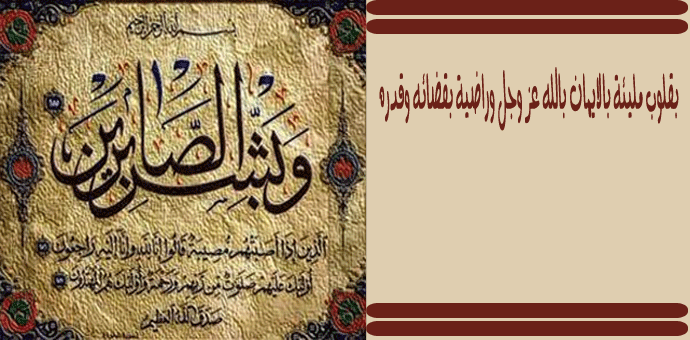 بسم الله الرحمن الرحيم
وَبَشِّرِ الصَّابِرِينَ
الَّذِينَ إِذَا أَصَابَتْهُم مُّصِيبَةٌ قَالُوا إِنَّا لِلَّهِ وَإِنَّا إِلَيْهِ رَاجِعُونَ
أُولَٰئِكَ عَلَيْهِمْ صَلَوَاتٌ مِّن رَّبِّهِمْ وَرَحْمَةٌ وَأُولَٰئِكَ هُمُ الْمُهْتَدُونَ
صَدَقَ اللهُ العَظِيم
بقلوب مليئة بالايمان بالله عز وجل وراضية بقضائه وقدره